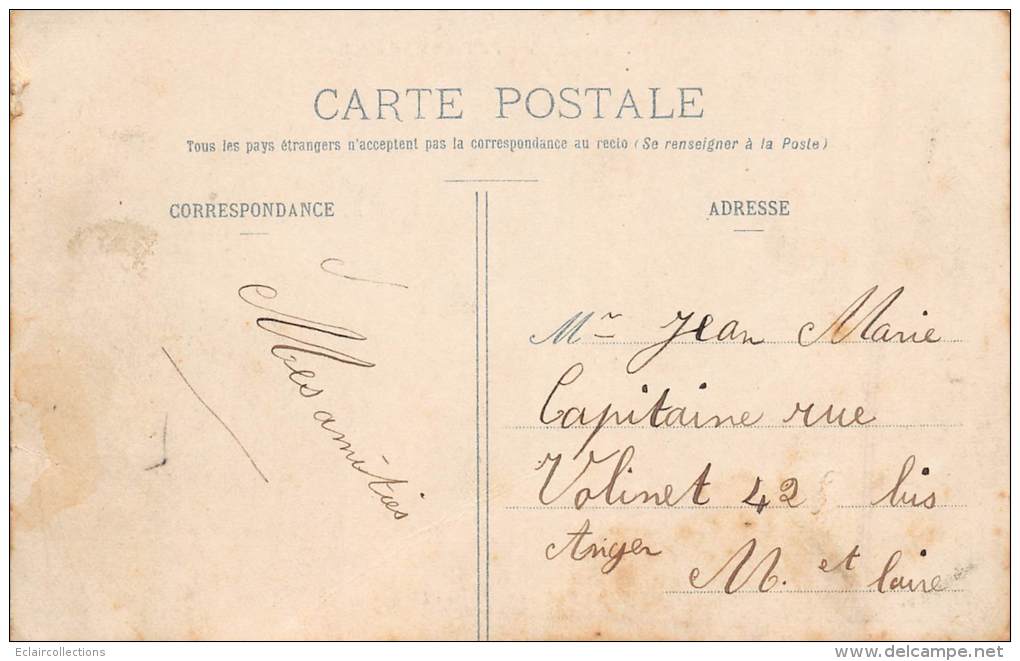 CARTE POSTALE
Tous les pays étrangers n'acceptent pas la correspondance au recto (Se renseigner à la Poste)
CORRESPONDANCE
Mes amitiés
ADRESSE
Mr Jean Marie
Capitaine rue
Volinet 42 bis
Anger
M. et Loire
Eclaircollections
www.delcampe.net